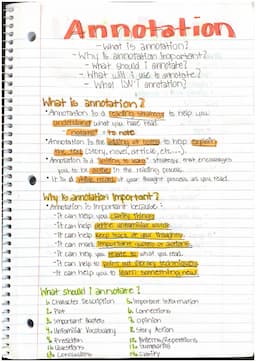 Annotation
- What is annotation?
- Why is annotation important?
- What should I annotate?
- What will I use to annotate?
- What ISN'T annotation?
What is annotation?
• Annotation is a reading strategy to help you
understand what you have read.
"notare" = to note
• Annotation is the adding of notes to help explain
the text (story, novel, article, etc...).
• Annotation is a "writing to learn" strategy that encourages
you to be active in the reading process.
• It is a visible record of your thought process as you read.
Why is annotation important?
• Annotation is important because:
- It can help you clarify things
- It can help define unfamiliar words
- It can help keep track of your thoughts
- It can mark important quotes or sections
- It can help you relate to what you read
- It can help to point out literary techniques
- It can help you to learn something new
What should I annotate?
1. Character Description
2. Plot
3. Important Quotes
4. Unfamiliar Vocabulary
5. Prediction
6. Important Information
Connections
Opinion
Story Action
Patterns/Repetitions
Summaries
Clarity